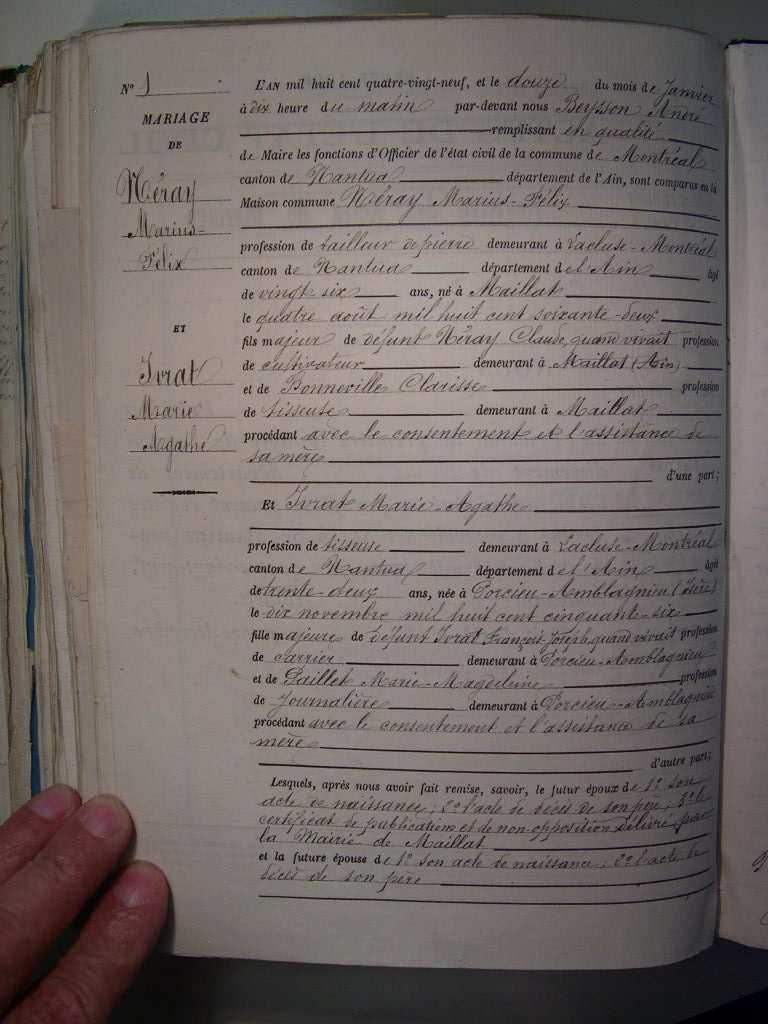 N° 1
MARIAGE
DE
Néray
Marius-
Félix
ET
Ivrat
Marie
Agathe
L'AN mil huit cent quatre-vingt-neuf, et le douze du mois de Janvier
à dix heure du matin par-devant nous Beysson André
remplissant en qualité
de Maire les fonctions d'Officier de l'état civil de la commune de Montréal
canton de Nantua département de l'Ain, sont comparus en la
Maison commune Néray Marius-Félix
profession de tailleur de pierre demeurant à Lacluse-Montréal
canton de Nantua département de l'Ain âgé
de vingt six ans, né à Maillat
le quatre août mil huit cent soixante-deux
fils majeur de défunt Néray Claude, quand vivait profession
de cultivateur demeurant à Maillat (Ain)
et de Bonneville Clarisse profession
de tisseuse demeurant à Maillat
procédant avec le consentement et l'assistance de
sa mère
d'une part;
Et Ivrat Marie-Agathe
profession de tisseuse demeurant à Lacluse-Montréal
canton de Nantua département de l'Ain âgée
de trente-deux ans, née à Porcieu-Amblagnieu (Isère)
le dix novembre mil huit cent cinquante-six
fille majeure de défunt Ivrat François-Joseph, quand vivait profession
de carrier demeurant à Porcieu-Amblagnieu
et de Paillet Marie-Magdeleine profession
de Journalière demeurant à Porcieu-Amblagnieu
procédant avec le consentement et l'assistance de sa
mère
d'autre part;
Lesquels, après nous avoir fait remise, savoir, le futur époux de 1° son
acte de naissance; 2° l'acte de décès de son père; 3° le
certificat de publications et de non-opposition délivré par
la Mairie de Maillat
et la future épouse de 1° son acte de naissance; 2° l'acte de
décès de son père